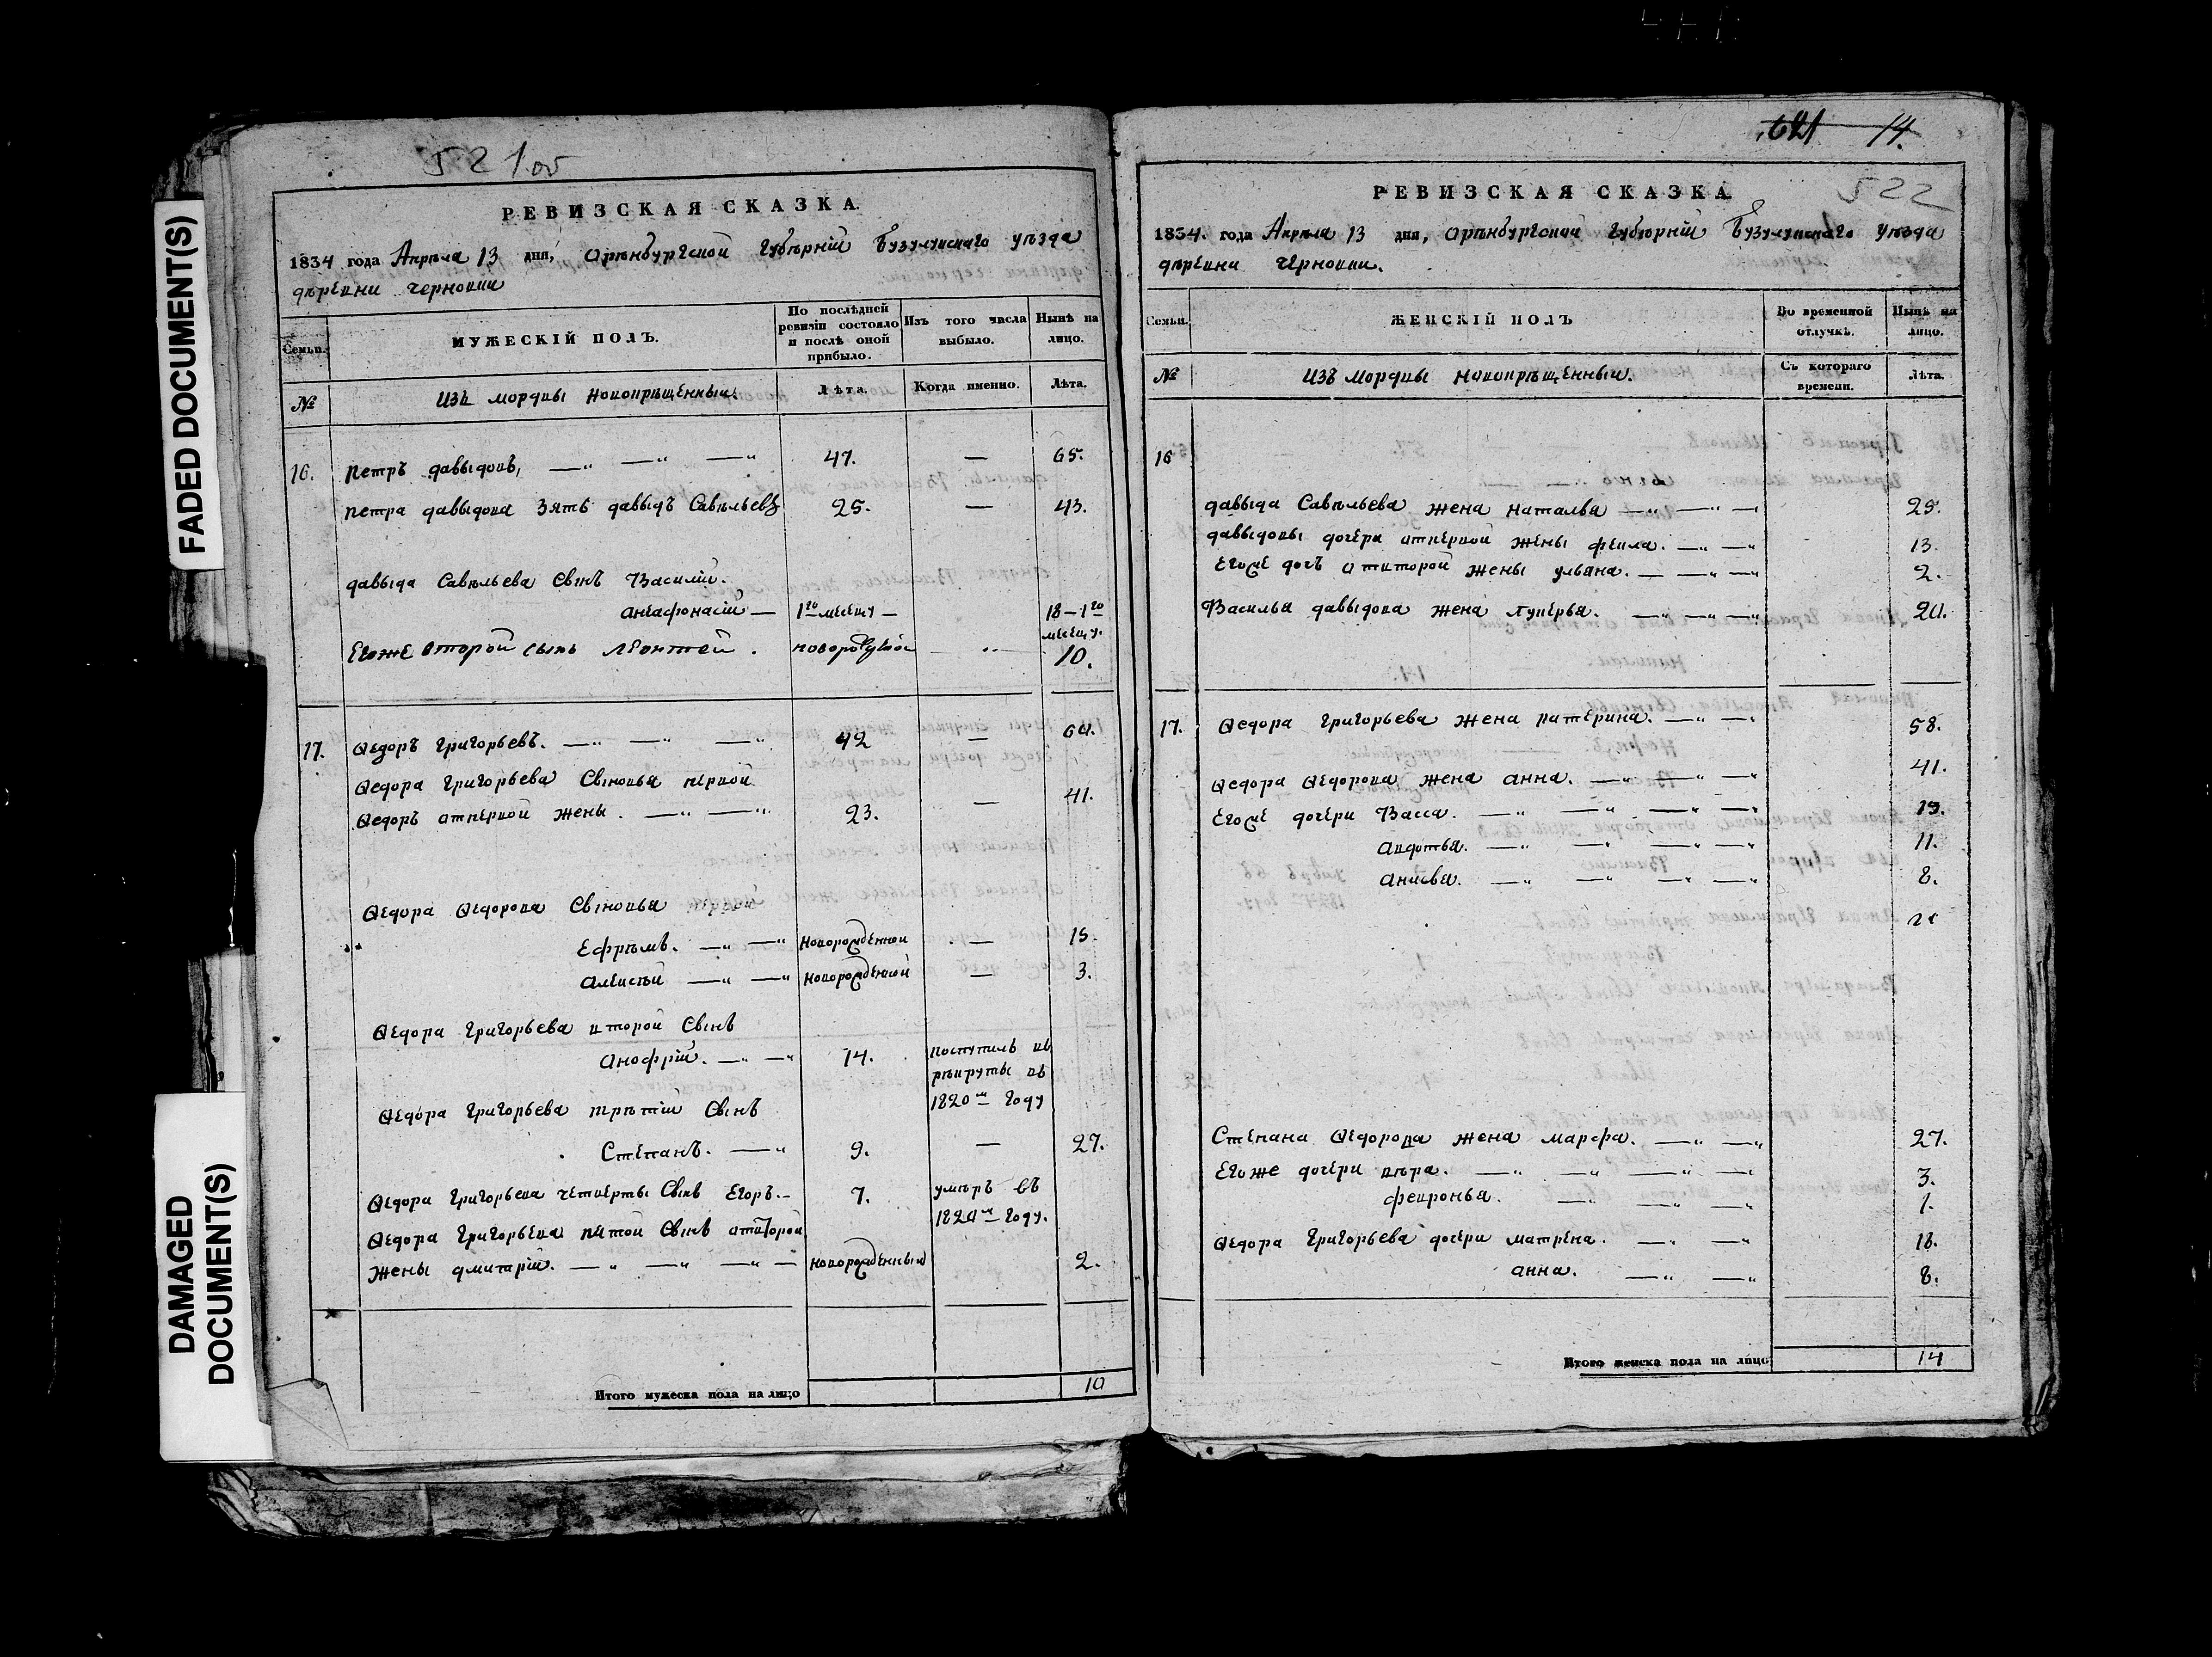 FADED DOCUMENT(S)
DAMAGED
DOCUMENT(S)
521об
РЕВИЗСКАЯ СКАЗКА.
1834 года Апрѣля 13 дня, Оренбургской Губерніи Бузулукскаго уѣзда
деревни Черновки
Семьи.
МУЖЕСКІЙ ПОЛЪ.
По послѣдней ревизіи состояло и послѣ оной прибыло.
Изъ того числа выбыло.
Нынѣ на лицо.
№
Изъ мордвы новокрѣщенныи.
Лѣта.
Когда именно.
Лѣта.
16. Петръ давыдовъ, — 47. — 65.
Петра давыдова Зять давыдъ Савѣльевъ 25. — 43.
давыда Савѣльева Сынъ Василій.
1го месецу — 18—1го
месецу.
Егоже второй сынъ Леонтей. новорожденой 10.
17. Ѳедоръ Григорьевъ. — 42 — 60.
Ѳедора Григорьева Сыновья первой
Ѳедоръ отпервой жены. — 23. — 41.
Ѳедора Ѳедорова Сыновья первой
Ефремъ. — новорожденной — 15
Алексѣй — новорожденной — 3.
Ѳедора Григорьева второй Сынъ
Анофрій. — 14. поступилъ въ
рекруты въ
1820м Году
Ѳедора Григорьева третій Сынъ
Степанъ. — 9. — 27.
Ѳедора Григорьева четверты Сынъ Егоръ. — 7. умеръ въ
1820м Году.
Ѳедора Григорьева пятой Сынъ отвторой
жены дмитарій. — новорожденный 2.
Итого мужеска пола на лицо 10
14.
522
РЕВИЗСКАЯ СКАЗКА
1834. года Апрѣля 13 дня, Оренбургской Губерніи Бузулукскаго уѣзда
деревни Черновки.
Семьи.
ЖЕНСКІЙ ПОЛЪ
Во временной отлучкѣ.
Нынѣ на лицо.
№
Изъ мордвы новокрѣщенныи.
Съ котораго времени.
Лѣта.
16
давыда Савѣльева жена Наталья — 29.
давыдовы дочери отпервой жены Фекла. — 13.
Егоже дочь отвторой жены ульяна. — 2.
Василья давыдова жена Лукерья. — 20.
17. Ѳедора Григорьева жена катерина. — 58.
Ѳедора Ѳедорова жена анна. — 41.
Егоже дочери Васса. — 19.
авдотья. — 11.
анисья. — 8.
Степана Ѳедорова жена марфа. — 27.
Егоже дочери вѣра. — 3.
февронья. — 1.
Ѳедора Григорьева дочери матрена. — 18.
анна. — 8.
Итого женска пола на лицо 14